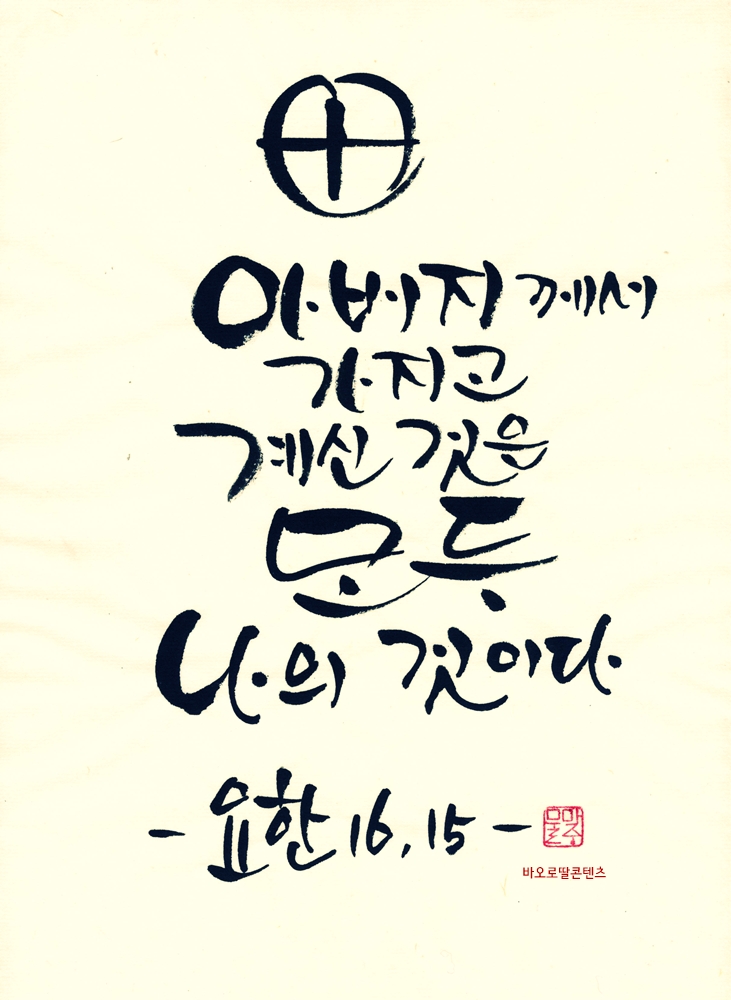 아버지께서
가지고
계신 것은
모두
나의 것이다
- 요한 16,15 -
바오로딸콘텐츠